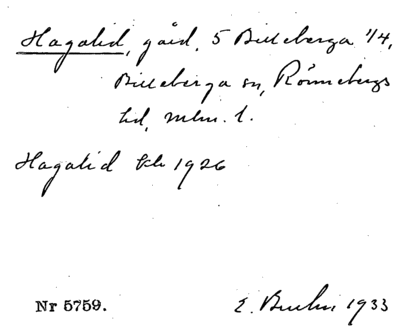 Hagalid, gård, 5 Billeberga 1/4,
Billeberga sn, Rönnebergs
hd, mlm. l.
Hagalid 1926
Nr 5759. E. 1933